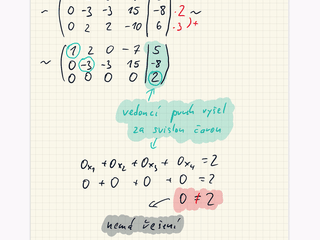 ~ ( 0 -3 -3 15 | -8 ) ·2 ~
0 2 2 -10 | 6 ·3 )+
~ ( 1 2 0 -7 | 5
0 -3 -3 15 | -8
0 0 0 0 | 2 )
vedoucí prvek vyšel
za svislou čarou
0x₁ + 0x₂ + 0x₃ + 0x₄ = 2
0 + 0 + 0 + 0 = 2
0 ≠ 2
nemá řešení